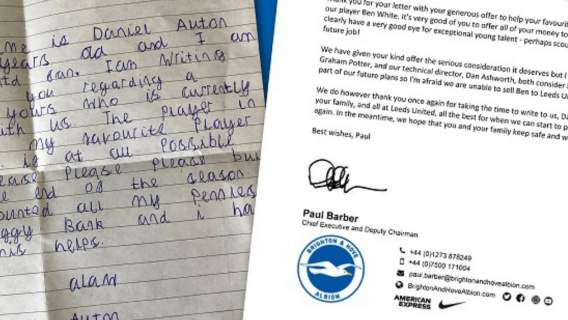 me is Daniel Auton
years old and I am
fan. I am Writing
you regarding a
yours who is currently
with us The player in
my favourite Player
is at all Possible
Please Please Please bu
end of the season
counted all my Pennies
iggy Bank and i ha
his helps.
Alan
Auton
you for your letter with your generous offer to help your favourit
our player Ben White. It's very good of you to offer all of your money to
clearly have a very good eye for exceptional young talent - perhaps scou
future job!
We have given your kind offer the serious consideration it deserves but I
Graham Potter, and our technical director, Dan Ashworth, both consider
part of our future plans so I'm afraid we are unable to sell Ben to Leeds U
We do however thank you once again for taking the time to write to us, Da
your family, and all at Leeds United, all the best for when we can start to p
again. In the meantime, we hope that you and your family keep safe and w
Best wishes, Paul
Paul Barber
Chief Executive and Deputy Chairman
BRIGHTON & HOVE
ALBION
+44 (0)1273 878249
+44 (0)7500 171004
paul.barber@brightonandhovealbion.com
BrightonAndHoveAlbion.com
AMERICAN
EXPRESS